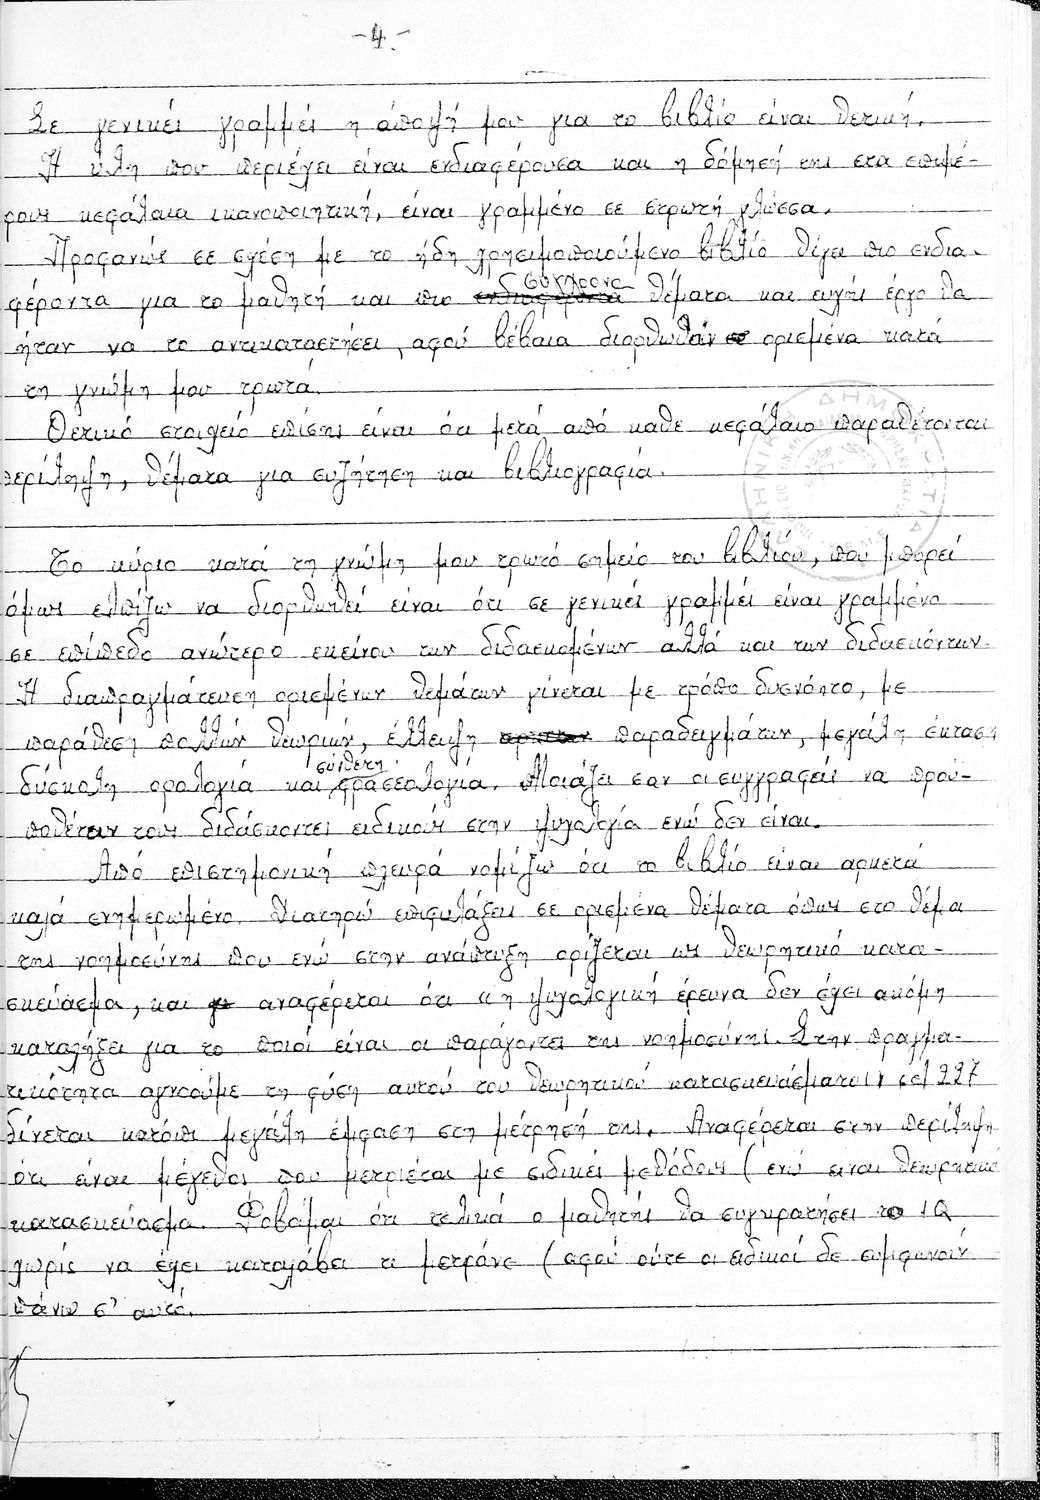 -4.-
Σε γενικές γραμμές η άποψή μου για το βιβλίο είναι θετική.
Η ύλη που περιέχει είναι ενδιαφέρουσα και η δόμησή της στα επιμέ-
ρους κεφάλαια ικανοποιητική, είναι γραμμένο σε στρωτή γλώσσα.
Προφανώς σε σχέση με το ήδη χρησιμοποιούμενο βιβλίο θίγει πιο ενδια-
φέροντα για το μαθητή και πιο σύγχρονα θέματα και ευχής έργο θα
ήταν να το αντικαταστήσει, αφού βέβαια διορθωθούν ορισμένα κατά
τη γνώμη μου τρωτά.
Θετικό στοιχείο επίσης είναι ότι μετά από κάθε κεφάλαιο παραθέτονται
περίληψη, θέματα για συζήτηση και βιβλιογραφία.
Το κύριο κατά τη γνώμη μου τρωτό σημείο του βιβλίου, που μπορεί
όμως ελπίζω να διορθωθεί είναι ότι σε γενικές γραμμές είναι γραμμένο
σε επίπεδο ανώτερο εκείνου των διδασκομένων αλλά και των διδασκόντων.
Η διαπραγμάτευση ορισμένων θεμάτων γίνεται με τρόπο δυσνόητο, με
παράθεση πολλών θεωριών, έλλειψη παραδειγμάτων, μεγάλη έκταση
δύσκολη ορολογία και σύνθετη φρασεολογία. Μοιάζει σαν οι συγγραφείς να προϋ-
ποθέτουν τους διδάσκοντες ειδικούς στην ψυχολογία ενώ δεν είναι.
Από επιστημονική πλευρά νομίζω ότι το βιβλίο είναι αρκετά
καλά ενημερωμένο. Διατηρώ επιφυλάξεις σε ορισμένα θέματα όπως στο θέμα
της νοημοσύνης που ενώ στην ανάπτυξη ορίζεται ως θεωρητικό κατα-
σκεύασμα, και αναφέρεται ότι "η ψυχολογική έρευνα δεν έχει ακόμη
καταλήξει για το ποιοί είναι οι παράγοντες της νοημοσύνης. Στην πραγμα-
τικότητα αγνοούμε τη φύση αυτού του θεωρητικού κατασκευάσματος" σελ 227
δίνεται κατόπι μεγάλη έμφαση στη μέτρησή της. Αναφέρεται στην περίληψη
ότι είναι μέγεθος που μετριέται με ειδικές μεθόδους (ενώ ειναι θεωρητικό
κατασκεύασμα. Φοβάμαι ότι τελικά ο μαθητής θα συγκρατήσει το IQ
χωρίς να έχει καταλάβει τι μετράνε (αφού ούτε οι ειδικοί δε συμφωνούν
πάνω σ' αυτό.